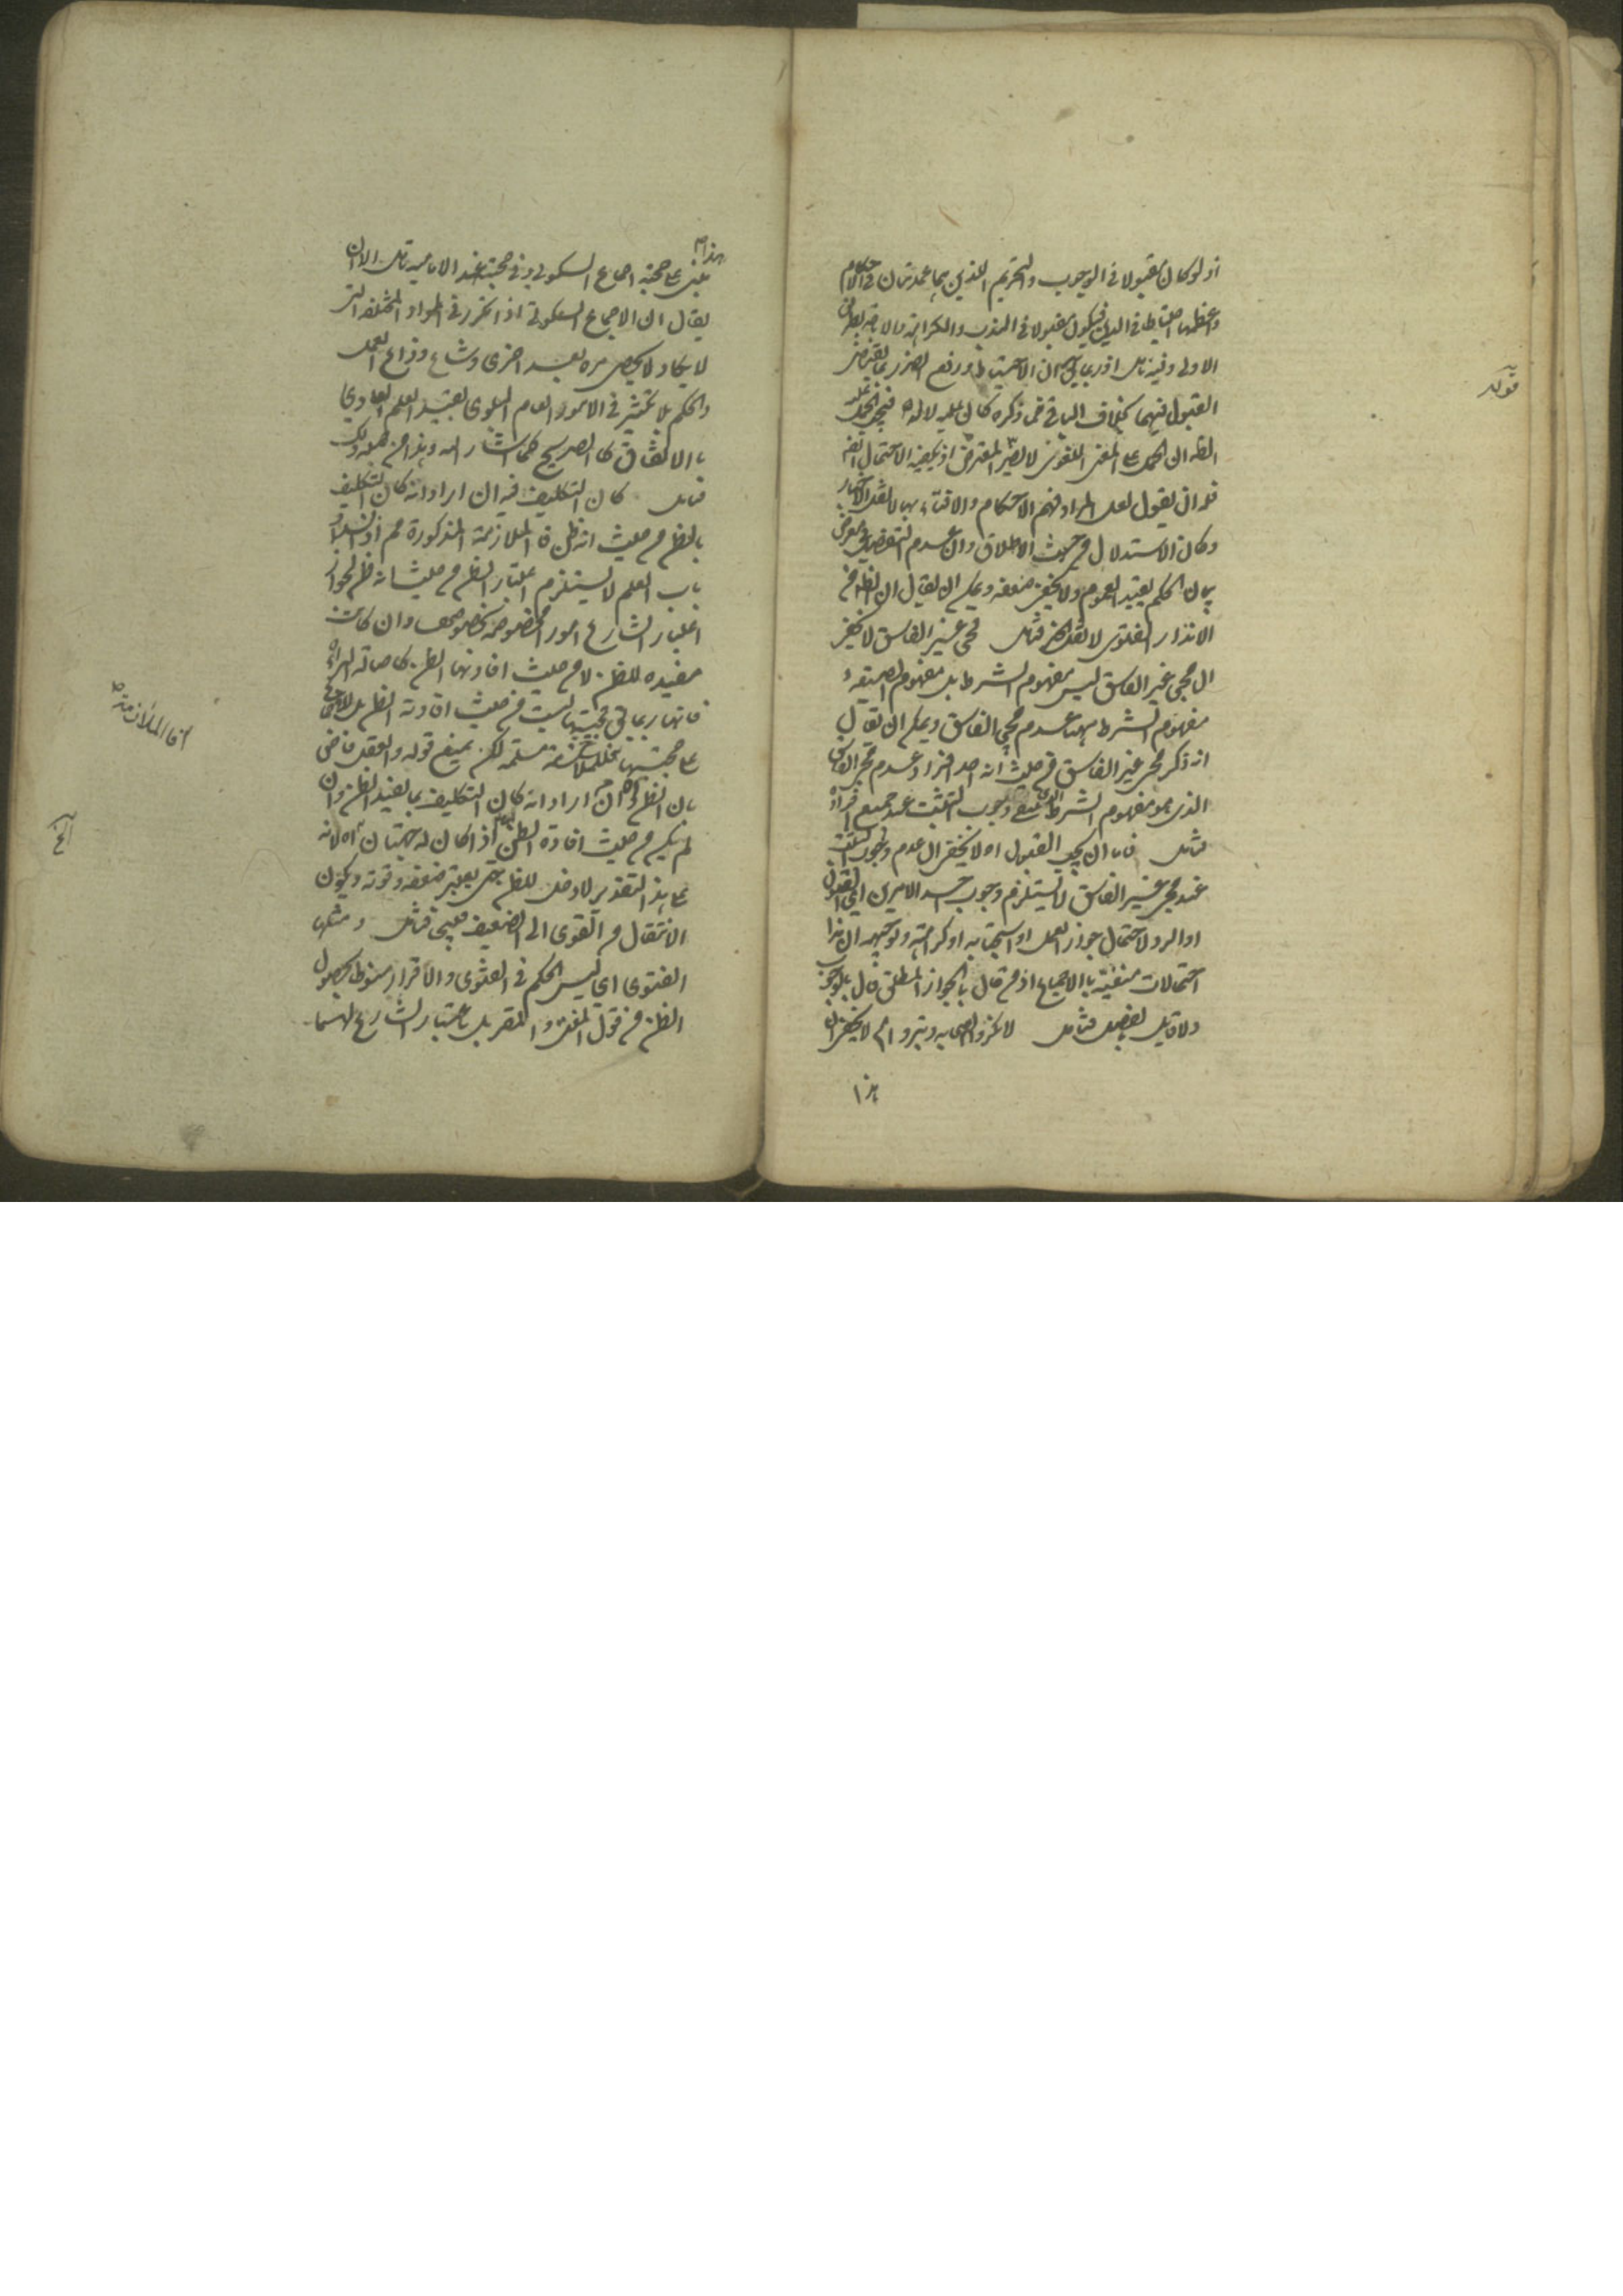 اذ لو كان مقبولا فى الوجوب والتحريم اللذين هما عمدتان فى الاحكام
واعظمها احتياطا فى الدين فيكون مقبولا فى الندب والكراهة والاباحة بطريق
الاولى وفيه تامل اذ ربما يقال ان الاحتياط ودفع الضرر ربما يقتضى
القبول فيهما بخلاف الباقى
الظ ان الحمل على المعنى اللغوى
فله ان يقول لعل المراد فهم الاحكام والافتاء بها لا نقل الاخبار
وكان الاستدلال من حيث الاطلاق وان عدم التفصيل فى معرض
بيان الحكم يفيد العموم ولا يخفى ضعفه ويمكن ان يقال ان الظ من
الانذار الفتوى لا نقل الخبر فتامل فمجئ غير الفاسق لا يخفى
ان مجئ غير الفاسق ليس مفهوم الشرط بل مفهوم الصفة و
مفهوم الشرط ههنا عدم مجئ الفاسق ويمكن ان يقال
انه ذكر مجئ غير الفاسق من حيث انه احد افراد عدم مجئ الفاسق
الذى هو مفهوم الشرط وجوب التثبت عند جميع افراده
فتامل فاما ان يجب القبول اه لا يخفى ان عدم وجوب التثبت
عند مجئ غير الفاسق لا يستلزم وجوب احد الامرين اى القبول
او الرد لاحتمال جواز العمل او استحبابه او كراهته وتوجيهه ان هذا
احتمالات منفية بالاجماع اذ من قال بالجواز المطلق قال بالوجوب
ولا قايل بالفصل فتامل لا يخفى ان
هذا
قوله
هذا
مبنى على حجية اجماع السكوتى وفى حجيته عند الامامية تامل الا ان
يقال ان الاجماع السكوتى اذا تكرر فى المواد المختلفة التى
لا يكاد لا يحصى مرة بعد اخرى وشاع وذاع العمل
والحكم بلا نكير فى الامور العام البلوى يفيد العلم العادى
بالاتفاق كالصريح كما اشار اليه وهذا من قبيل ذلك
فتامل كان التكليف فيه ان اراد انه كان التكليف
بالظن من حيث انه ظن فالملازمة المذكورة مم اذ انسداد
باب العلم لا يستلزم اعتبار الظن من حيث انه ظن لجواز
اعتبار الشارع امورا مخصوصة بخصوصها وان كانت
مفيدة للظن لا من حيث افادتها الظن كاصالة البراءة
فانها ربما حجيتها ليست من حيث افادته الظن بل للاجماع
على حجيتها مسلمة لكن يمنع قوله والعقل قاض
بان الظن اه ان اراد انه كان التكليف بما يفيد الظن وان
لم يكن من حيث افادة الظن اذا كان له جهتان اه لانه
على هذا التقدير لا دخل للظن حتى يعتبر ضعفه وقوته ويكون
الانتقال من القوى الى الضعيف قبيح فتامل ومثلها
الفتوى اى ليس الحكم فى الفتوى والاقرار منوط بحصول
الظن من قول المفتى والمقر بل باعتبار الشارع لهما
فالملازمة